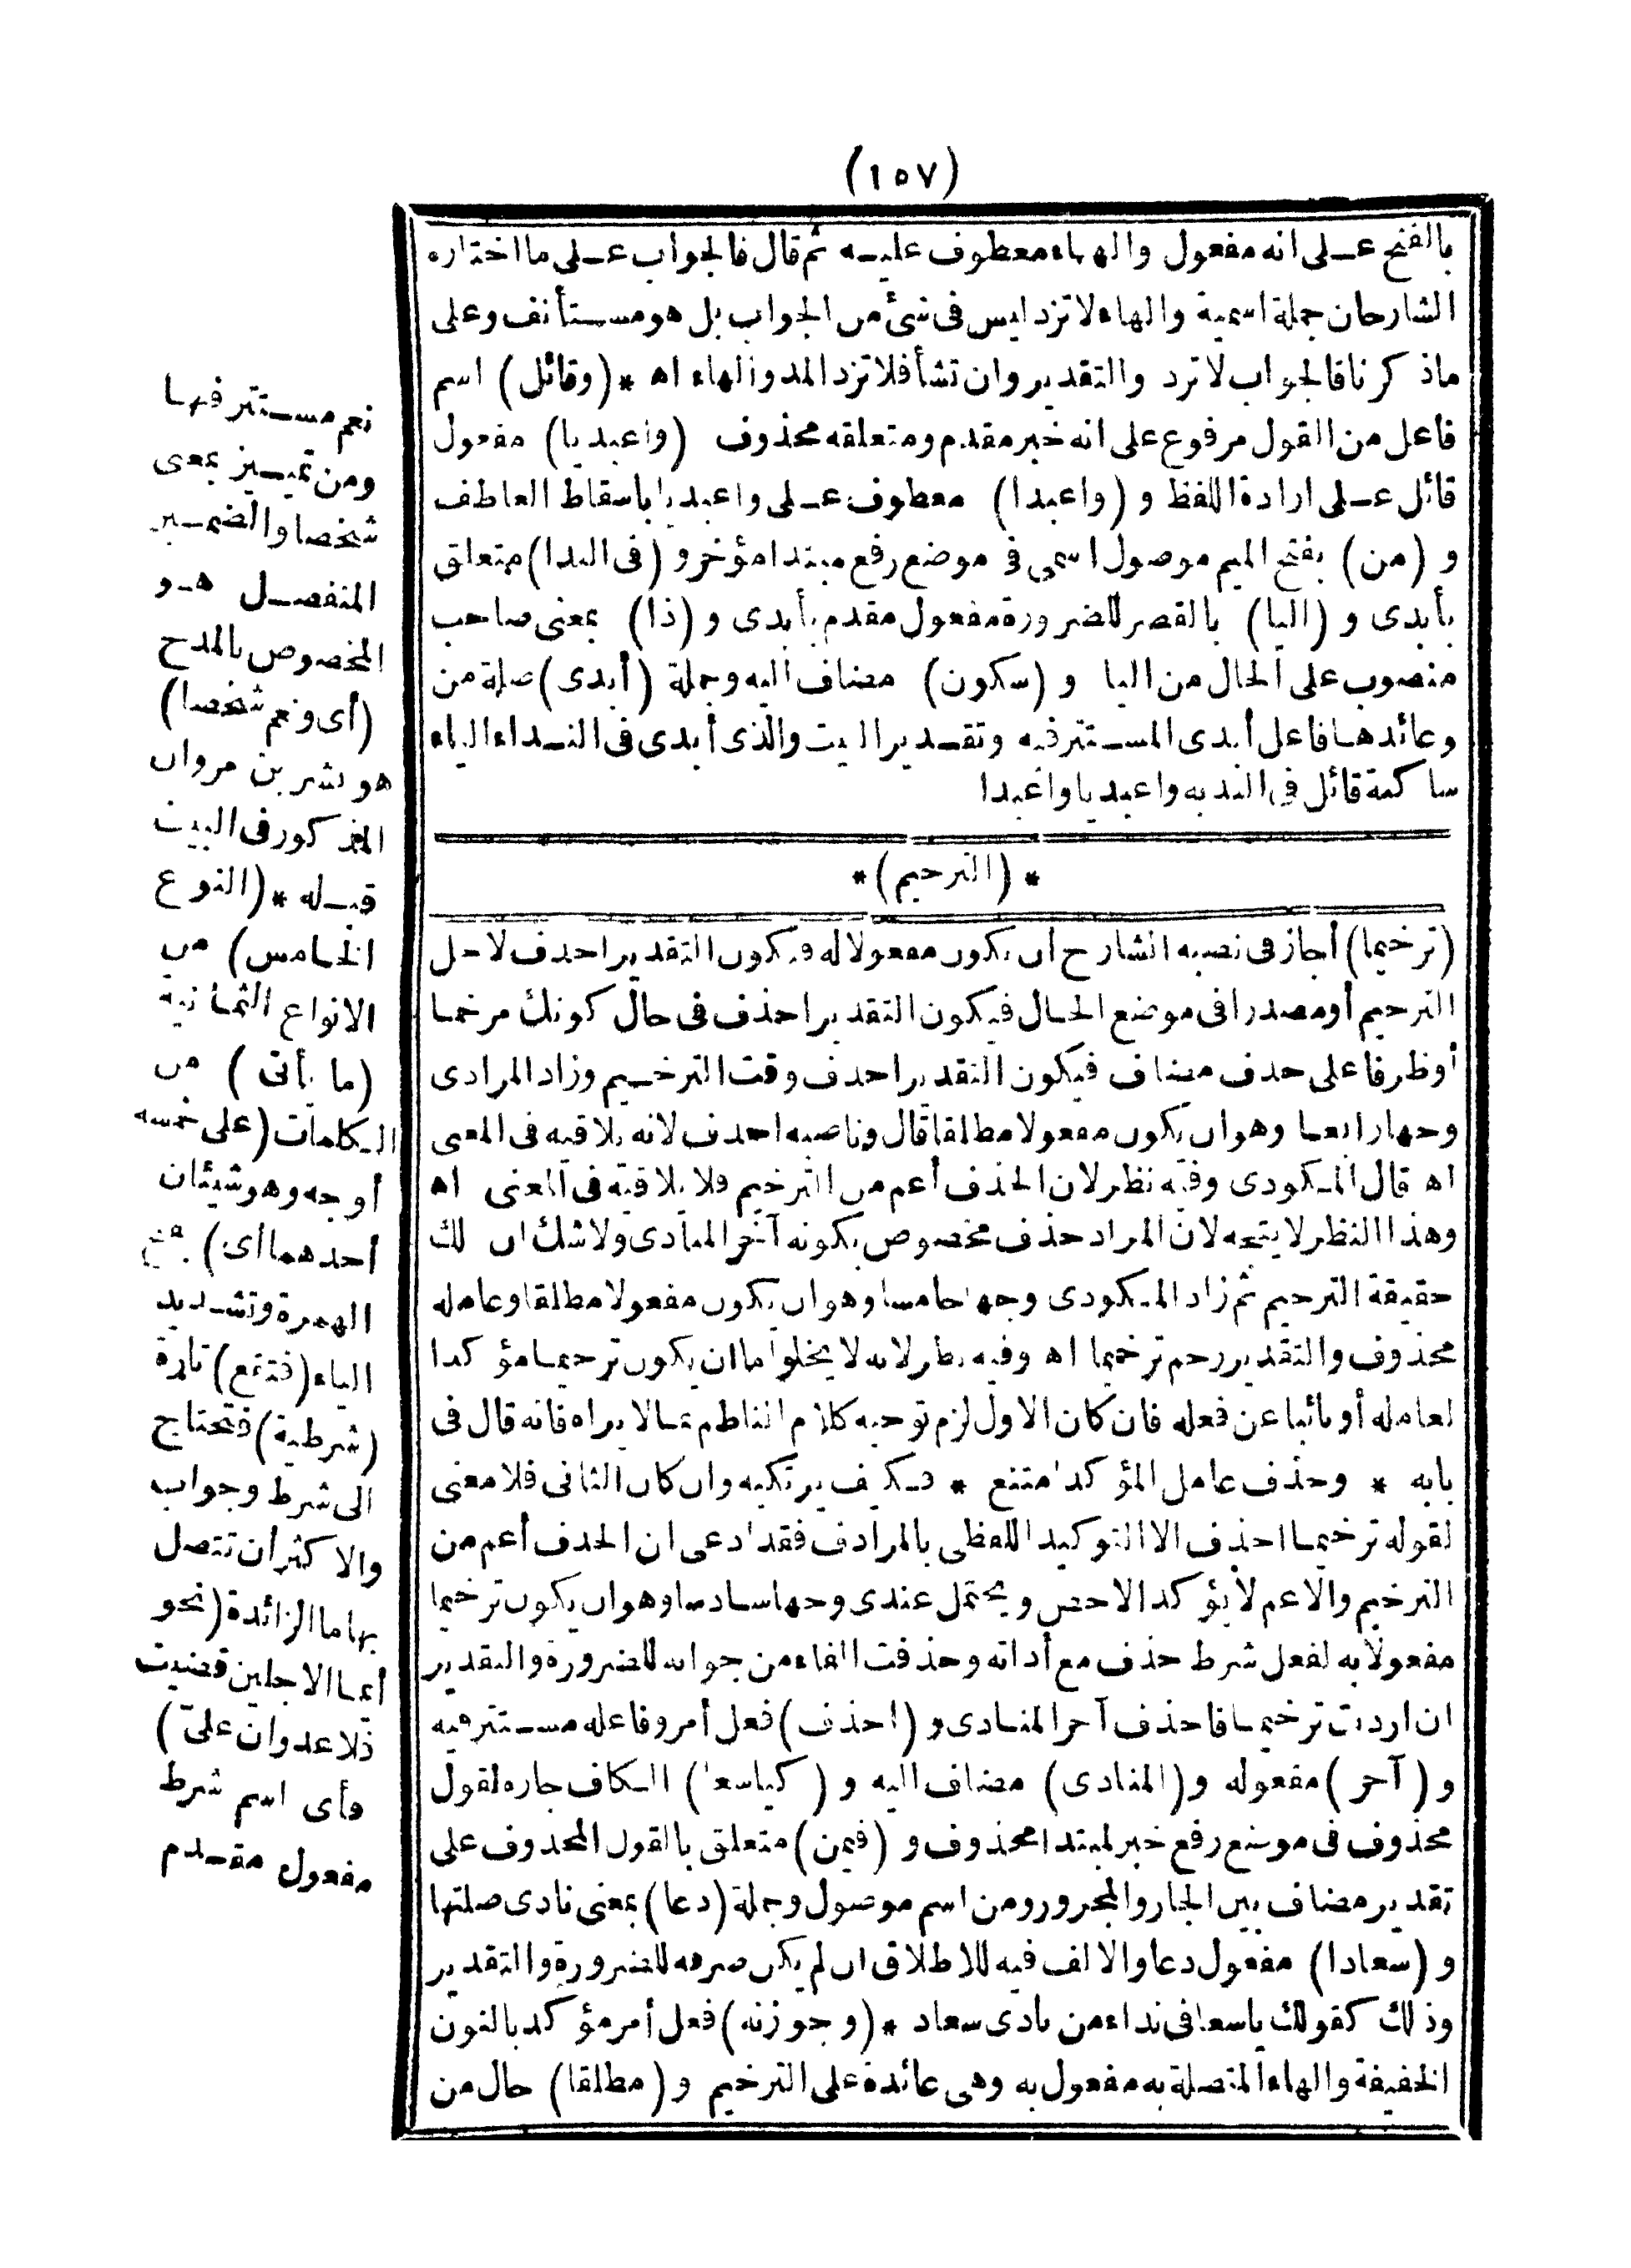 (١٥٧)
بالفتح على انه مفعول والهاء معطوف عليه ثم قال فالجواب على ما اختاره
الشارحان جملة اسمية والهاء لا تزد ليس فى شئ من الجواب بل هو مستأنف وعلى
ماذكرنا فالجواب لا تزد والتقدير وان تشأ فلا تزد المد والهاء اه * (وقائل) اسم
فاعل من القول مرفوع على انه خبر مقدم ومتعلقه محذوف (واعبديا) مفعول
قائل على ارادة اللفظ و (واعبدا) معطوف على واعبديا باسقاط العاطف
و (من) بفتح الميم موصول اسمى فى موضع رفع مبتدا مؤخر و (فى الندا) متعلق
بأبدى و (اليا) بالقصر للضرورة مفعول مقدم بأبدى و (ذا) بمعنى صاحب
منصوب على الحال من اليا و (سكون) مضاف اليه وجملة (أبدى) صلة من
وعائدها فاعل أبدى المستتر فيه وتقدير البيت والذى أبدى فى النداء الياء
ساكنة قائل فى الندبه واعبديا واعبدا
* (الترخيم) *
(ترخيما) أجاز فى نصبه الشارح أن يكون مفعولا له فيكون التقدير احذف لاجل
الترخيم أو مصدرا فى موضع الحال فيكون التقدير احذف فى حال كونك مرخما
أو ظرفا على حذف مضاف فيكون التقدير احذف وقت الترخيم وزاد المرادى
وجها رابعا وهو ان يكون مفعولا مطلقا قال وناصبه احذف لانه يلاقيه فى المعنى
اه قال المكودى وفيه نظر لان الحذف أعم من الترخيم فلا يلاقيه فى المعنى اه
وهذا النظر لا يتجه لان المراد حذف مخصوص بكونه آخر المنادى ولا شك ان ذلك
حقيقة الترخيم ثم زاد المكودى وجها خامسا وهو ان يكون مفعولا مطلقا وعامله
محذوف والتقدير رخم ترخيما اه وفيه نظر لانه لا يخلو اما ان يكون ترخيما مؤكدا
لعامله أو نائبا عن فعله فان كان الاول لزم توجيه كلام الناظم بما لا يراه فانه قال فى
بابه * وحذف عامل المؤكد امتنع * فكيف يرتكبه وان كان الثانى فلا معنى
لقوله ترخيما احذف الا التوكيد اللفظى بالمرادف فقد ادعى ان الحذف أعم من
الترخيم والاعم لا يؤكد الاخص ويحتمل عندى وجها سادسا وهو ان يكون ترخيما
مفعولا به لفعل شرط حذف مع أداته وحذفت الفاء من جوابه للضرورة والتقدير
ان اردت ترخيما فاحذف آخر المنادى و (احذف) فعل أمر وفاعله مستتر فيه
و (آخر) مفعوله و (المنادى) مضاف اليه و (كياسعا) الكاف جاره لقول
محذوف فى موضع رفع خبر لمبتدا محذوف و (فيمن) متعلق بالقول المحذوف على
تقدير مضاف بين الجار والمجرور ومن اسم موصول وجملة (دعا) بمعنى نادى صلتها
و (سعادا) مفعول دعا والالف فيه للاطلاق ان لم يكن صرفه للضرورة والتقدير
وذلك كقولك ياسعا فى نداء من نادى سعاد * (وجوزنه) فعل أمر مؤكد بالنون
الخفيفة والهاء المتصلة به مفعول به وهى عائدة على الترخيم و (مطلقا) حال من
نعم مستتر فيها
ومن تمييز بمعنى
شخصا والضمير
المنفصل هو
المخصوص بالمدح
(أى ونعم شخصا)
هو بشر بن مروان
المذكور فى البيت
قبله * (النوع
الخامس) من
الانواع الثمانية
(ما يأتى) من
الكلمات (على خمسه
أوجه وهو شيئان
أحدهما أى) بفتح
الهمزة وتشديد
الياء (فتقع) تارة
(شرطية) فتحتاج
الى شرط وجواب
والاكثر أن تتصل
بها ما الزائدة (نحو
أيما الاجلين قضيت
فلا عدوان على)
فأى اسم شرط
مفعول مقدم